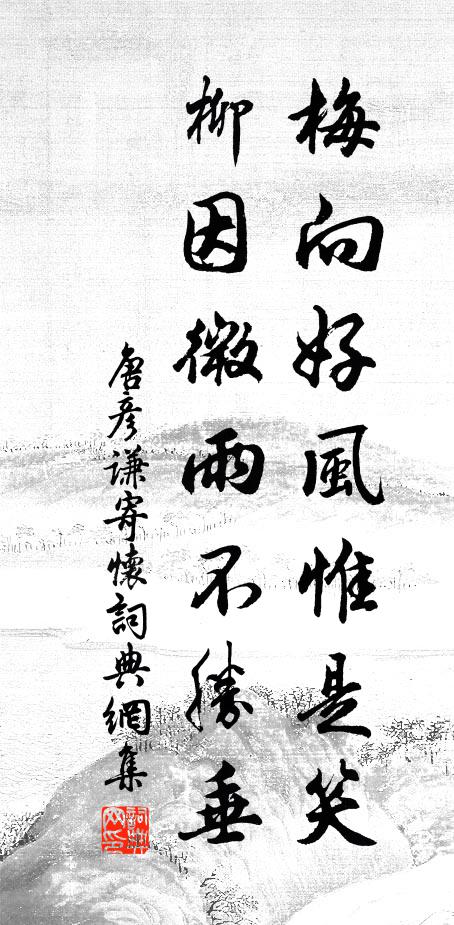 梅向好風惟是笑
柳因微雨不勝垂
唐彥謙寄懷詞典網集